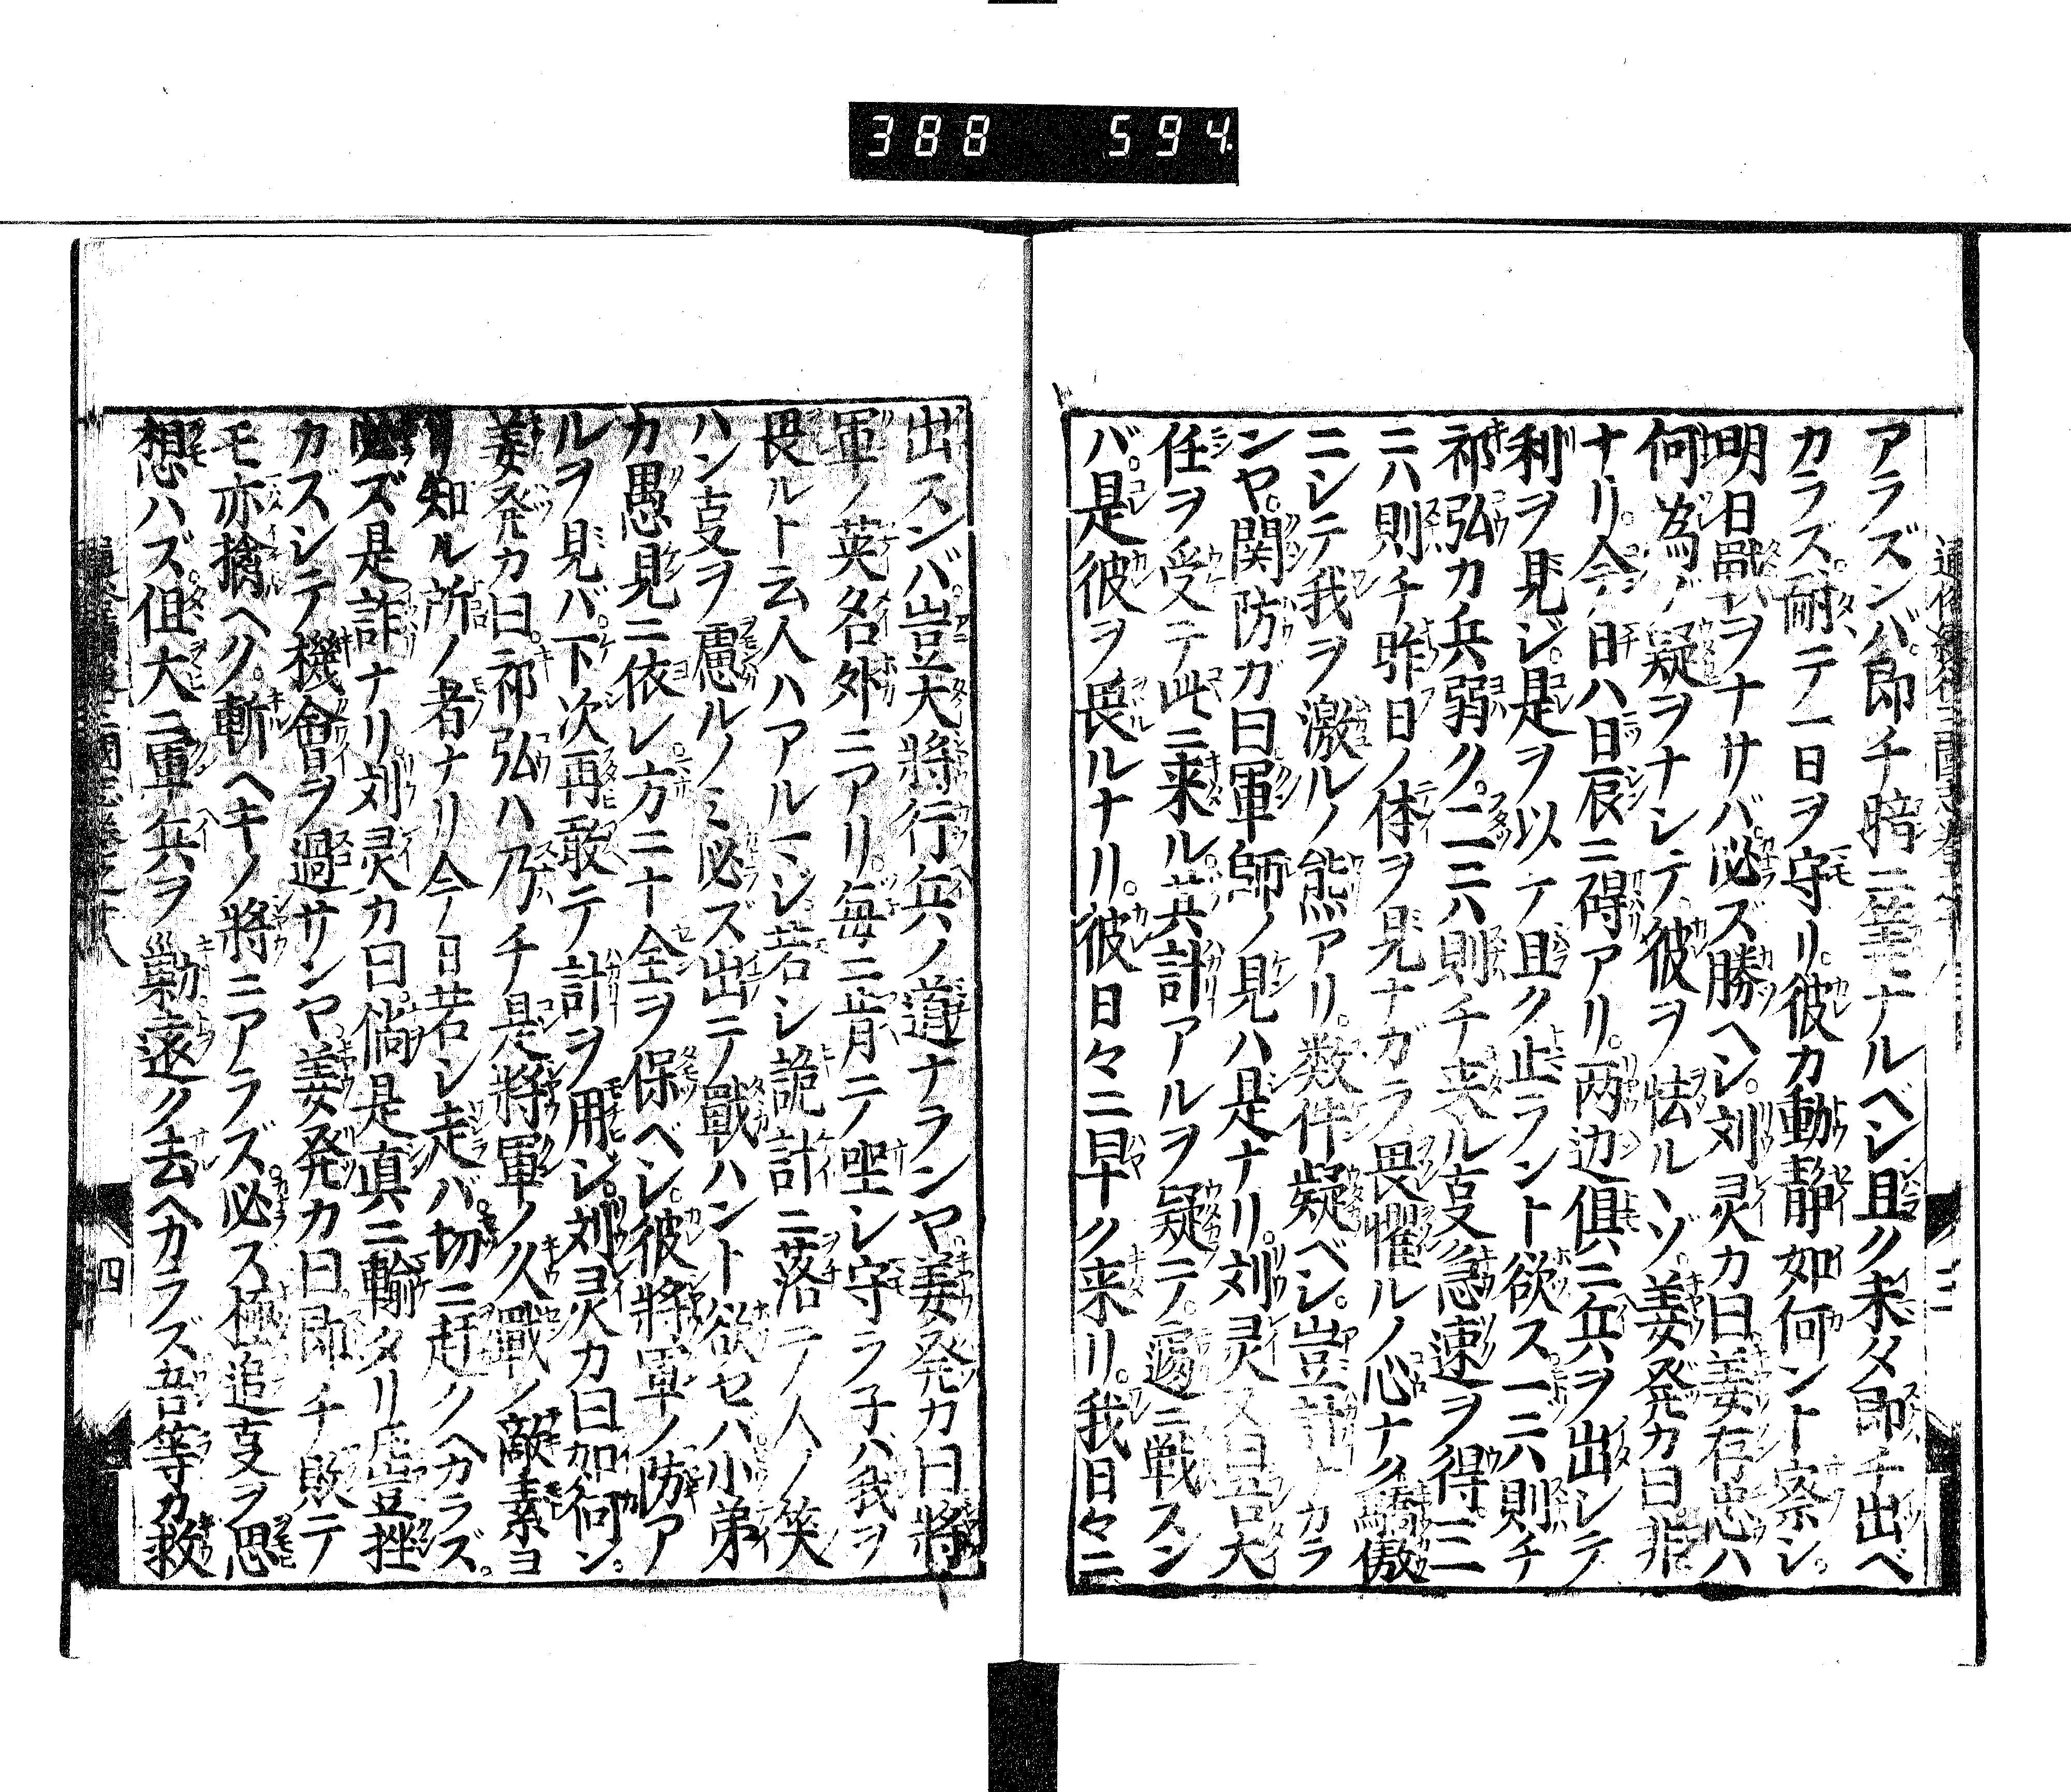 388 594
アラズンバ。即チ暗ニ筆ナルベシ且ク未タ即チ出ベ
カラズ。耐テ一日ヲ守リ。彼カ動静如何ント察シ。
明日戰ヲナサバ。必ズ勝ヘシ。刘灵カ曰姜存忠ハ
何為ゾ疑ヲナシテ。彼ヲ怯ルヽゾ。姜発カ曰非
ナリ。今日ハ日辰ニ碍アリ。两辺俱ニ兵ヲ出シテ
利ヲ見ジ。是ヲ以テ且ク止ラント欲ス。一ニハ則チ
祁弘カ兵弱ク。二ニハ則チ来ル支急速ヲ得。三
ニハ則チ昨日ノ体ヲ見ナガラ。畏懼ルノ心ナク。驕傲
ニシテ我ヲ激ルノ熊アリ。数件疑ベシ。豈計ラ
ンヤ。関防カ曰軍師ノ見ハ是ナリ。刘灵又曰吾大
任ヲ受テ此ニ来ル。其計アルヲ疑テ。遏ニ戦スン
バ。是彼ヲ畏ルナリ。彼日々ニ早ク来リ。我日々ニ
出スンバ。豈大將行兵ノ道ナランヤ。姜発カ曰將
軍ノ英名外ニアリ。毎ニ肯テ坐シ守ラ子バ。我ヲ
畏ルト云人ハアルマジ。若シ詭計ニ落テ人ノ笑
ハン支ヲ慮ルノミ必ズ出テ戰ハント欲セバ。小弟
カ愚見ニ依レ。方ニ十全ヲ保ベシ。彼將軍ノ防ア
ルヲ見バ。下次再敢テ計ヲ用ジ。刘灵カ曰如何ン。
姜発カ曰。祁弘ハ乃チ是將軍ノ久戰ノ敵素ヨ
リ知ル所ノ者ナリ今日若シ走バ。切ニ赶クヘカラズ。
必ズ是詐ナリ。刘灵カ曰。倘是真ニ輸タリ𪜈豈挫
カズシテ機會ヲ過サンヤ。姜発カ曰即チ敗テ
モ亦擒ヘク。斬ヘキノ將ニアラズ。必ズ極追支ヲ思
想ハズ。但大ニ軍兵ヲ勦逐ク去ヘカラズ吾等カ救
四